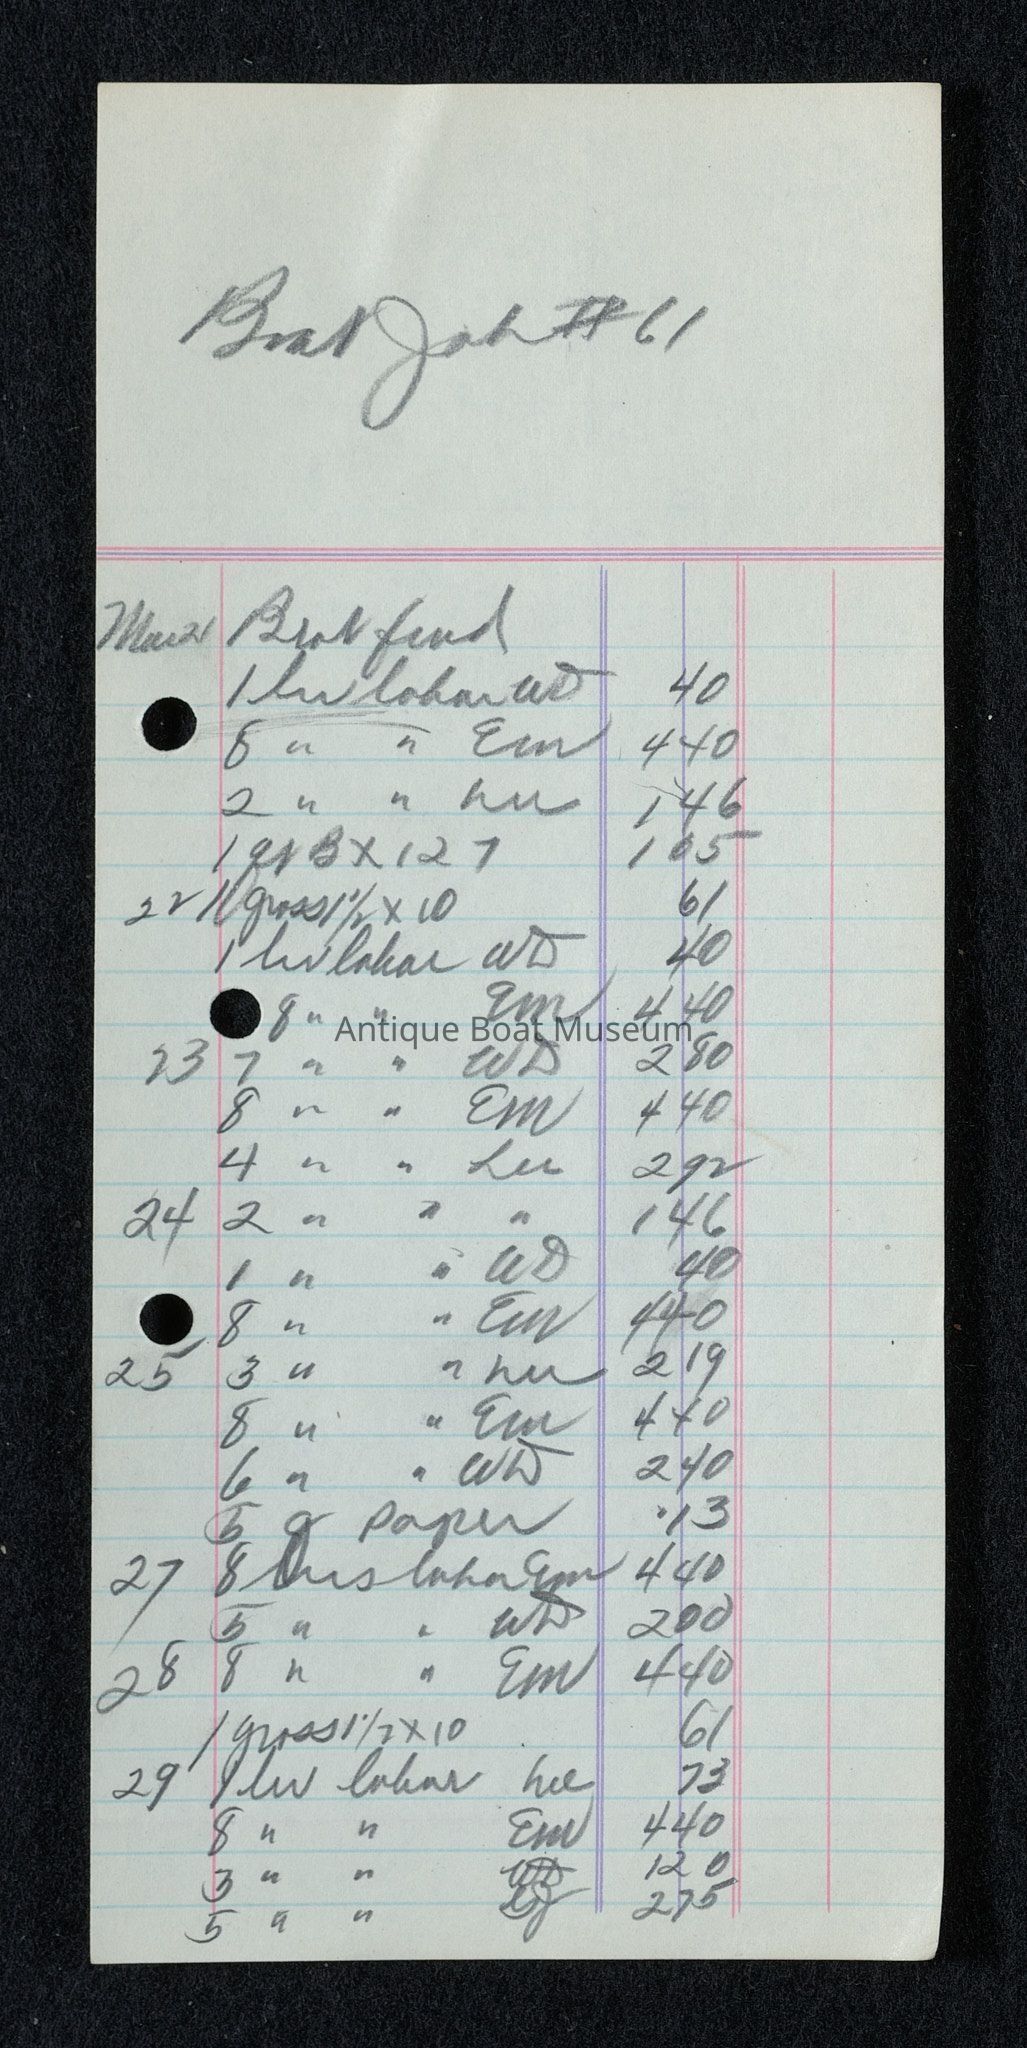 Boat Job # 61
Mar 21 Boat fwd
1 hr labor WD 40
8 " " Em 4 40
2 " " Lee 1 46
1 qt B X 127 1 05
22 1 gross 1 1/2 X 10 61
1 hr labor WD 40
8 " " Em 4 40
Antique Boat Museum
23 7 " " WD 2 80
8 " " Em 4 40
4 " " Lee 2 92
24 2 " " " 1 46
1 " " WD 40
8 " " Em 4 40
25 3 " " Lee 2 19
8 " " Em 4 40
6 " " WD 2 40
5 paper .13
27 8 hrs labor Em 4 40
5 " " WD 2 00
28 8 " " Em 4 40
1 gross 1 1/2 X 10 61
29 1 hr labor Lee 73
8 " " Em 4 40
3 " " WD 1 20
5 " " 2 75